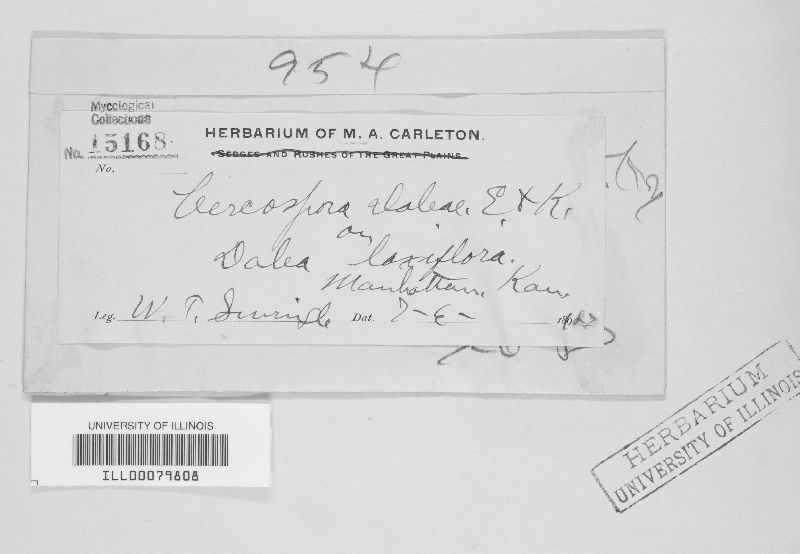 954
Mycological
Collections
No. 15168
HERBARIUM OF M. A. CARLETON.
SEDGES AND RUSHES OF THE GREAT PLAINS.
No.
Cercospora Daleae. E. & K.
on
Dalea laxiflora.
Manhattan, Kan.
Leg. W. T. Swingle Dat. 7-6- 1887
UNIVERSITY OF ILLINOIS
ILL00079808
HERBARIUM
UNIVERSITY OF ILLINOIS